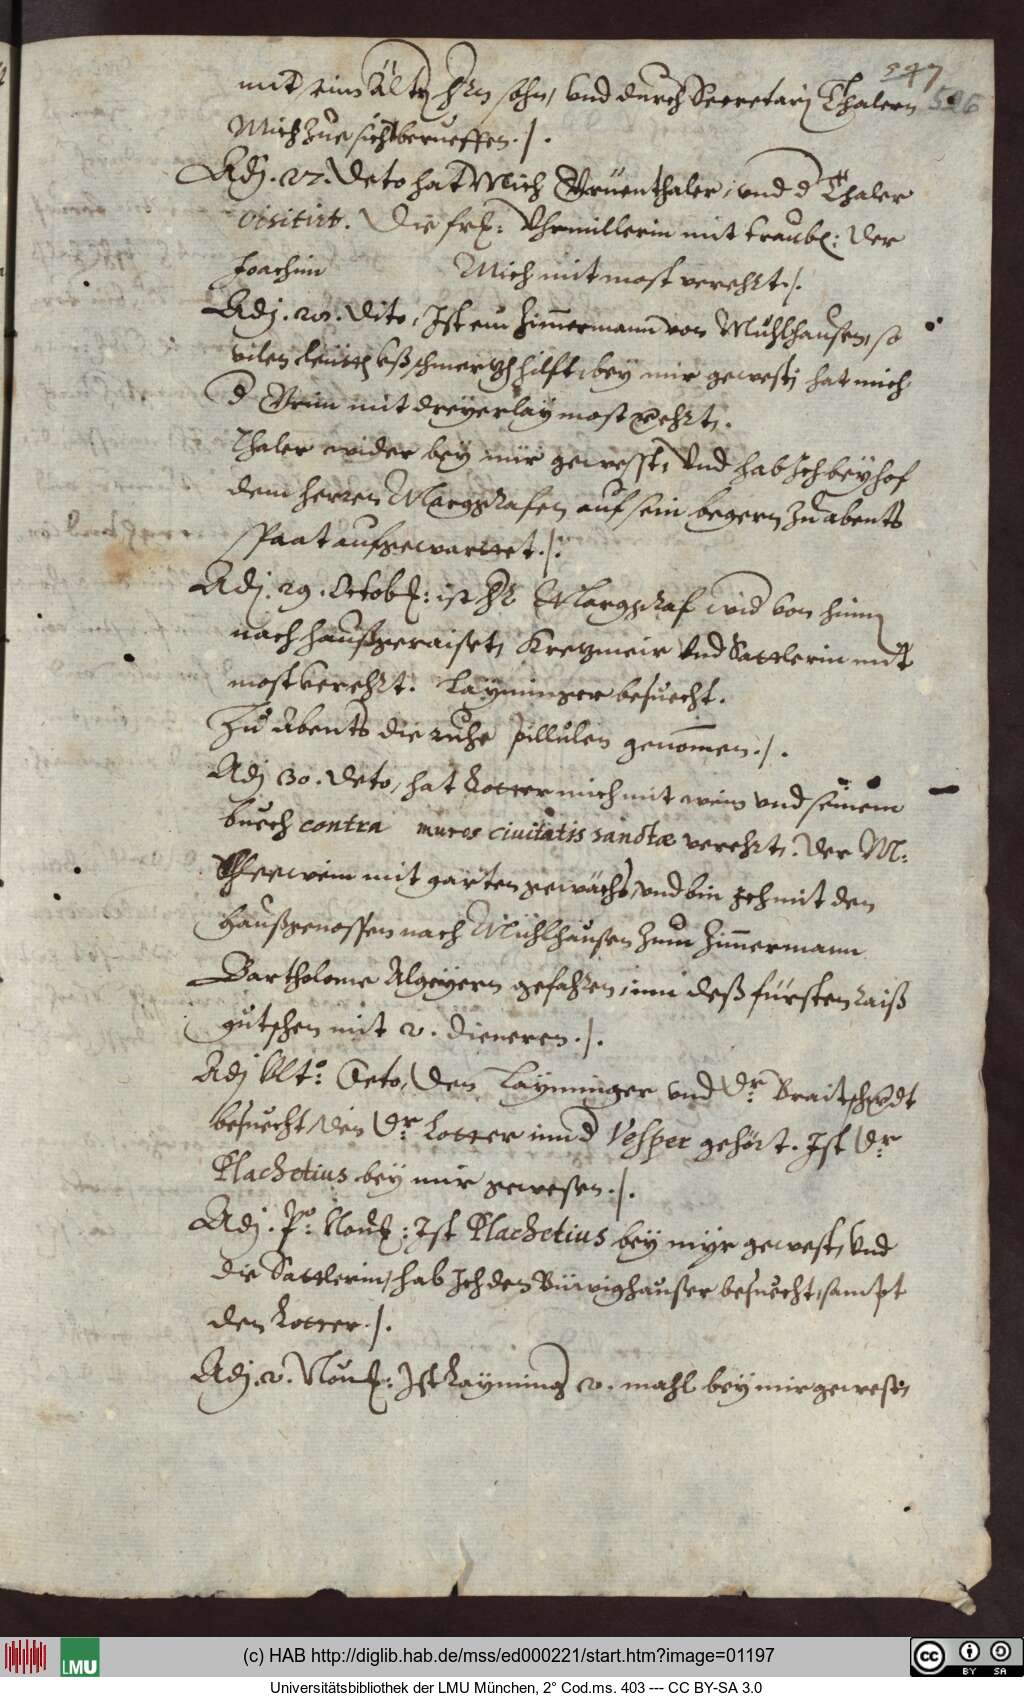 547
526
mit eim Ältern Hern sohn, vnd durch Secretarj Thalern
Mich zue sich berueffen ./.
Adj. 27. Deto hat Mich Grüenthaler, vnd d Thaler
visitirt. Die fr: Vhrmillerin mit traub: der
Joachim Mich mit most verehrt ./.
Adj. 28. dito, Ist ein Zimmermann von Mühlhausen, so
vilen leütten schmertzen hilft, bey mir gewest, hat mich
d mit dreyerlay most verehrt.
Thaler wider bey mir gewesst, Vnd hab Ich bey hof
dem herren Marggrafen auf sein begern zu abents
spaat aufgewarttet ./.
Adj. 29. Octob: ist Hr Marggraf wid von hinn
nach hauß geraiset, Kretzmeir Vnd Sattlerin mit
most verehrt. Layminger besuecht.
Zu Abents die ruhe pillulen genommen ./.
Adj 30. deto, hat Lotter mich mit wein vnd seinem
buech contra muros ciuitatis sanctæ verehrt. der M:
mit garten gewächs, vnd bin Ich mit den
haußgenossen nach Mühlhausen zum Zimmermann
Bartholome Algeyern gefahren, inn deß fürsten raiß
gutschen mit 2. dieneren ./.
Adj Vlt: Deto, den Layminger vnd Dr: Braitschwdt
besuecht, den Dr: Lotter inn d Vesper gehört. Ist Dr:
Plachetius bey mir gewesen ./.
Adj. Po: Nou: Ist Plachetius bey myr gewest, Vnd
die Sattlerin, hab Ich den Büwighaußer besuecht, sampt
den Lotter ./.
Adj. 2. Nou: Ist Layming 2. mahl bey mir gewest,
LMU
(c) HAB http://diglib.hab.de/mss/ed000221/start.htm?image=01197
Universitätsbibliothek der LMU München, 2° Cod.ms. 403 --- CC BY-SA 3.0
cc BY SA